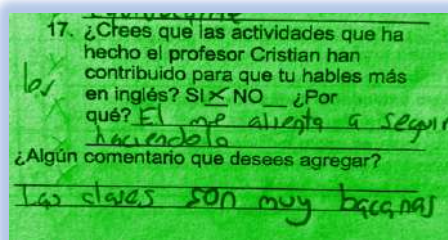 17. ¿Crees que las actividades que ha
hecho el profesor Cristian han
contribuido para que tu hables más
en inglés? SI X NO__ ¿Por
qué? El me alienta a seguir
haciendolo
¿Algún comentario que desees agregar?
Las clases son muy bacanas